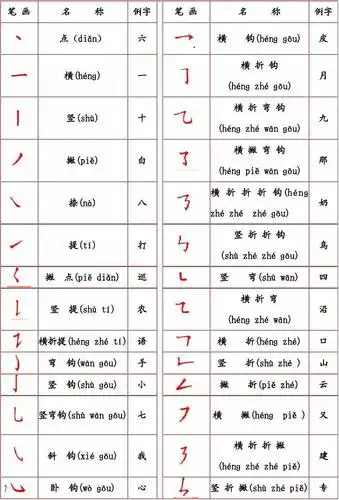 笔 画 名 称 例字 笔 画 名 称 例字
点(diǎn) 六 横 钩(héng gōu) 皮
横(héng) 一 横 折 钩 (héng zhé gōu) 月
竖(shù) 十 横 折 弯 钩 (héng zhé wān gōu) 九
撇(piě) 白 横 撇 弯 钩 (héng piě wān gōu) 那
捺(nà) 八 横 折 折 折 钩(héng zhé zhé zhé gōu) 奶
提(tí) 打 竖 折 折 钩 (shù zhé zhé gōu) 鸟
撇 点(piě diǎn) 巡 竖 弯(shù wān) 四
竖 提(shù tí) 农 横 折 弯 (héng zhé wān) 沿
横折提(héng zhé tí) 语 横 折(héng zhé) 口
弯 钩(wān gōu) 手 竖 折(shù zhé ) 山
竖 钩(shù gōu) 小 撇 折(piě zhé) 云
竖弯钩(shù wān gōu) 七 横 撇(héng piě ) 又
斜 钩(xié gōu) 我 横 折 折 撇 (héng zhé zhé piě) 建
卧 钩(wò gōu) 心 竖 折 撇(shù zhé piě) 专